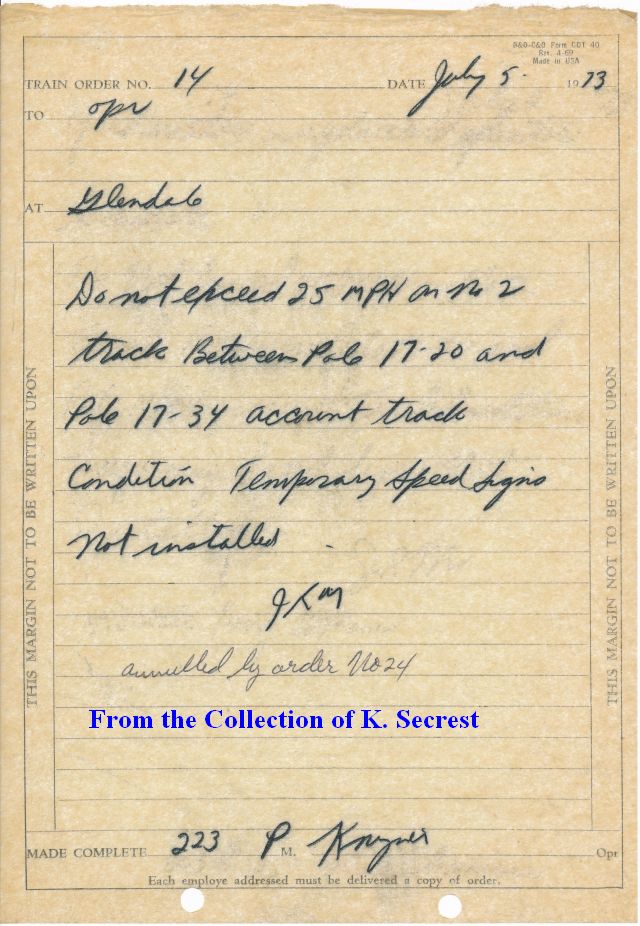 B&O-C&O Form CDT 40
Rev. 4-69
Made in USA
TRAIN ORDER NO. 14 DATE July 5 1973
TO opr
AT Glendale
Do not exceed 25 MPH on No 2
track Between Pole 17-20 and
Pole 17-34 account track
Condition Temporary Speed Signs
Not installed
JKM
annulled by order No 24
From the Collection of K. Secrest
MADE COMPLETE 223 P M. Opr
Each employe addressed must be delivered a copy of order.
THIS MARGIN NOT TO BE WRITTEN UPON
THIS MARGIN NOT TO BE WRITTEN UPON